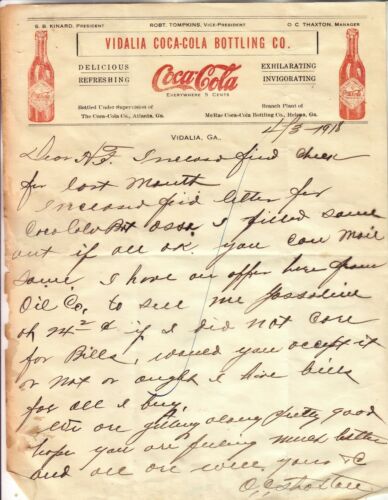 G. B. KINARD, PRESIDENT ROBT. TOMPKINS, VICE-PRESIDENT O C THAXTON, MANAGER
VIDALIA COCA-COLA BOTTLING CO.
DELICIOUS
REFRESHING
Coca-Cola
EVERYWHERE 5 CENTS
EXHILARATING
INVIGORATING
Bottled Under Supervision of
The Coca-Cola Co., Atlanta, Ga.
Branch Plant of
McRae Coca-Cola Bottling Co., Helena, Ga.
VIDALIA, GA., 4/3 1918
Dear A.F. I inclose find check
for last month
I inclose find letter for
Coca Cola Bot Asso. I filled same
out if all ok you can mail
same. I have an offer here from
Oil Co. to sell me gassoline
if I did not care
for Bills, would you accept it
or not or ought I have bills
for all I buy.
We are getting along pretty good
hope you are feeling much better
and all are well yours &C
O C Thaxton